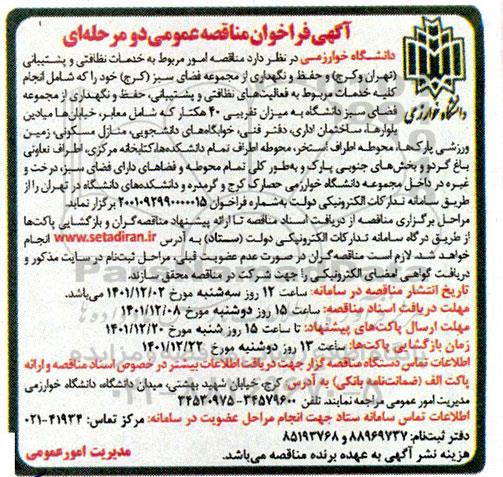 آگهی فراخوان مناقصه عمومی دو مرحله‌ای
دانشگاه خوارزمی
دانشگاه خوارزمی در نظر دارد مناقصه امور مربوط به خدمات نظافتی و پشتیبانی
(تهران و کرج) و حفظ و نگهداری از مجموعه فضای سبز (کرج) خود را که شامل انجام
کلیه خدمات مربوط به فعالیت‌های نظافتی و پشتیبانی، حفظ و نگهداری از مجموعه
فضای سبز دانشگاه به میزان تقریبی ۴۰ هکتار که شامل معابر، خیابان‌ها میادین
بلوارها، ساختمان اداری، دفتر فنی، خوابگاه‌های دانشجویی، منازل مسکونی، زمین
ورزشی پارک‌ها، محوطه اطراف استخر، محوطه اطراف تمام دانشکده‌ها، کتابخانه مرکزی، اطراف تعاونی
باغ گردو و بخش‌های جنوبی پارک و به‌طور کلی تمام محوطه و فضاهای دارای فضای سبز، درخت و
غیره در داخل مجموعه دانشگاه خوارزمی حصارک کرج و گرمدره و دانشکده‌های دانشگاه در تهران را از
طریق سامانه تدارکات الکترونیکی دولت به‌شماره فراخوان ۲۰۰۱۰۹۲۹۹۰۰۰۰۱۵ برگزار نماید
مراحل برگزاری مناقصه از دریافت اسناد مناقصه تا ارائه پیشنهاد مناقصه‌گران و بازگشایی پاکت‌ها
از طریق درگاه سامانه تدارکات الکترونیکی دولت (ستاد) به آدرس www.setadiran.ir انجام
خواهد شد. لازم است مناقصه‌گران در صورت عدم عضویت قبلی، مراحل ثبت‌نام در سایت مذکور و
دریافت گواهی امضای الکترونیکی را جهت شرکت در مناقصه محقق سازند.
تاریخ انتشار مناقصه در سامانه: ساعت ۱۲ روز سه‌شنبه مورخ ۱۴۰۱/۱۲/۰۲ می‌باشد.
مهلت دریافت اسناد مناقصه: ساعت ۱۵ روز دوشنبه مورخ ۱۴۰۱/۱۲/۰۸
مهلت ارسال پاکت‌های پیشنهاد: تا ساعت ۱۵ روز شنبه مورخ ۱۴۰۱/۱۲/۲۰
زمان بازگشایی پاکت‌ها: ساعت ۱۳ روز دوشنبه مورخ ۱۴۰۱/۱۲/۲۲
اطلاعات تماس دستگاه مناقصه گزار جهت دریافت اطلاعات بیشتر در خصوص اسناد مناقصه و ارائه
پاکت الف (ضمانت‌نامه بانکی) به آدرس کرج، خیابان شهید بهشتی، میدان دانشگاه، دانشگاه خوارزمی
مدیریت امور عمومی مراجعه نمایند. تلفن ۳۴۵۷۹۶۰۰-۳۴۵۳۰۹۷۵
اطلاعات تماس سامانه ستاد جهت انجام مراحل عضویت در سامانه: مرکز تماس: ۴۱۹۳۴-۰۲۱
دفتر ثبت‌نام: ۸۸۹۶۹۷۳۷ و ۸۵۱۹۳۷۶۸
هزینه نشر آگهی به عهده برنده مناقصه می‌باشد.
مدیریت امور عمومی